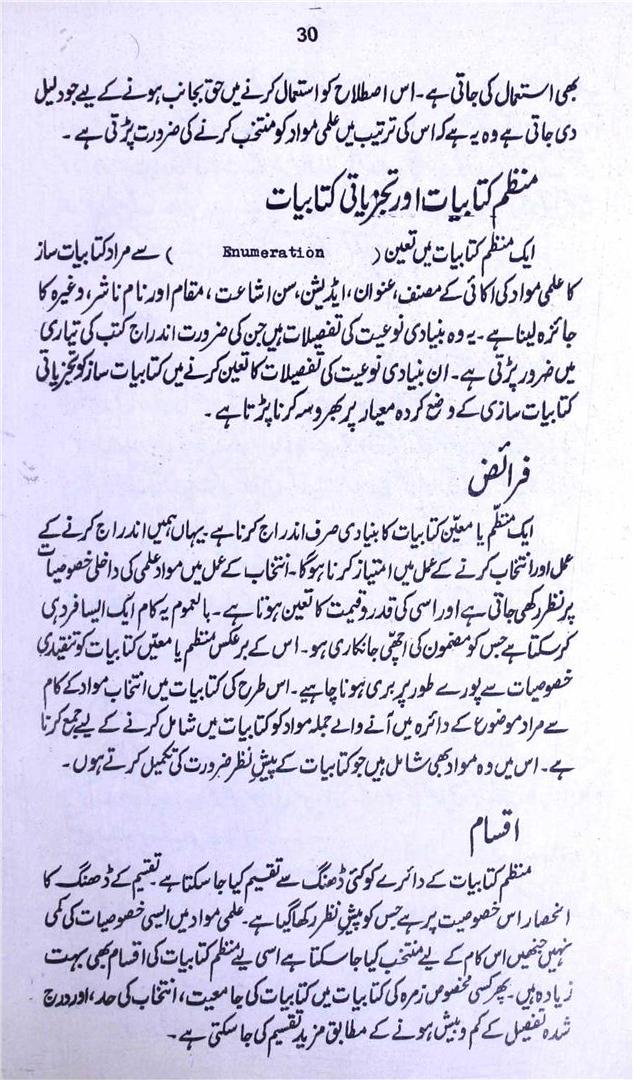 30
بھی استعمال کی جاتی ہے۔ اس اصطلاح کو استعمال کرنے میں حق بجانب ہونے کے لیے جو دلیل
دی جاتی ہے وہ یہ ہے کہ اس کی ترتیب میں علمی مواد کو منتخب کرنے کی ضرورت پڑتی ہے ۔
منظم کتابیات اور تجزیاتی کتابیات
ایک منظم کتابیات میں تعین ( Enumeration ) سے مراد کتابیات ساز
کا علمی مواد کی اکائی کے مصنف، عنوان، ایڈیشن، سن اشاعت، مقام اور نام ناشر، وغیرہ کا
جائزہ لینا ہے ۔ یہ وہ بنیادی نوعیت کی تفصیلات ہیں جن کی ضرورت اندراج کتب کی تیاری
میں ضرور پڑتی ہے۔ ان بنیادی نوعیت کی تفصیلات کا تعین کرنے میں کتابیات ساز کو تجزیاتی
کتابیات سازی کے وضع کردہ معیار پر بھروسہ کرنا پڑتا ہے ۔
فرائض
ایک منظّم یا معیّن کتابیات کا بنیادی صرف اندراج کرنا ہے یہاں ہمیں اندراج کرنے کے
عمل اور انتخاب کرنے کے عمل میں امتیاز کرنا ہوگا۔ انتخاب کے عمل میں مواد علمی کی داخلی خصوصیات
پر نظر رکھی جاتی ہے اور اسی کی قدر و قیمت کا تعین ہوتا ہے ۔ بالعموم یہ کام ایک ایسا فرد ہی
کر سکتا ہے جس کو مضمون کی اچھی جانکاری ہو۔ اس کے برعکس منظم یا معیّن کتابیات کو تنقیدی
خصوصیات سے پورے طور پر بری ہونا چاہیے۔ اس طرح کی کتابیات میں انتخاب مواد کے کام
سے مراد موضوع کے دائرہ میں آنے والے جملہ مواد کو کتابیات میں شامل کرنے کے لیے جمع کرنا
ہے ۔ اس میں وہ مواد بھی شامل ہیں جو کتابیات کے پیش نظر ضرورت کی تکمیل کرتے ہوں ۔
اقسام
منظم کتابیات کے دائرے کو کئی ڈھنگ سے تقسیم کیا جا سکتا ہے۔ تقسیم کے ڈھنگ کا
انحصار اس خصوصیت پر ہے جس کو پیش نظر رکھا گیا ہے۔ علمی مواد میں ایسی خصوصیات کی کمی
نہیں جنھیں اس کام کے لیے منتخب کیا جا سکتا ہے اسی لیے منظم کتابیات کی اقسام بھی بہت
زیادہ ہیں۔ پھر کسی مخصوص زمرہ کی کتابیات میں کتابیات کی جامعیت، انتخاب کی حد، اور درج
شدہ تفصیل کے کم و بیش ہونے کے مطابق مزید تقسیم کی جا سکتی ہے ۔